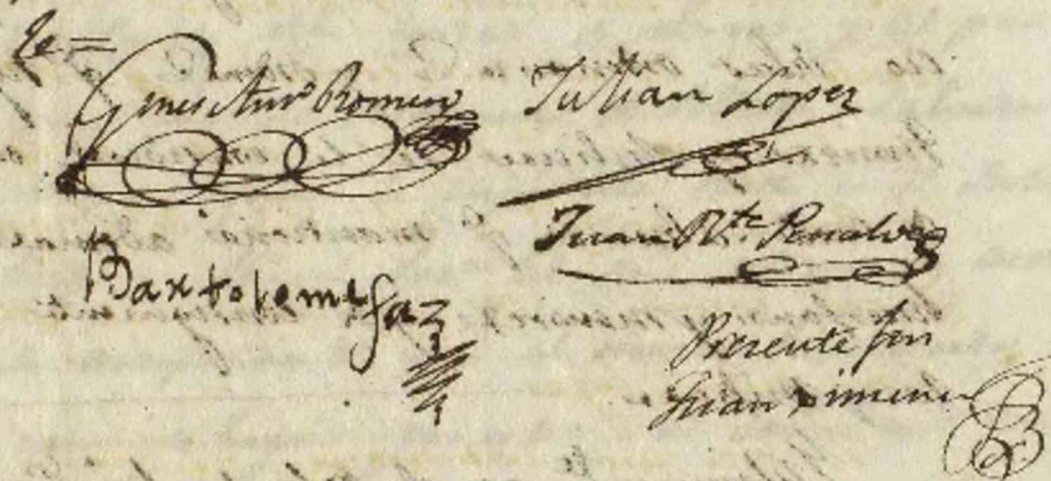 Gines Ant.º Romero
Julian Lopez
Juan R.te Penalver
Bartolome faz
Presente fui
Juan Ximenez